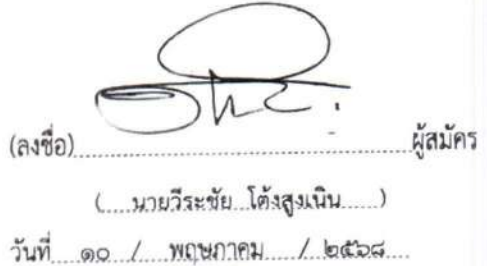 (ลงชื่อ)........................................ผู้สมัคร
(.....นายวีระชัย โต้งสูงเนิน.....)
วันที่....๑๐ / พฤษภาคม / ๒๕๖๘....